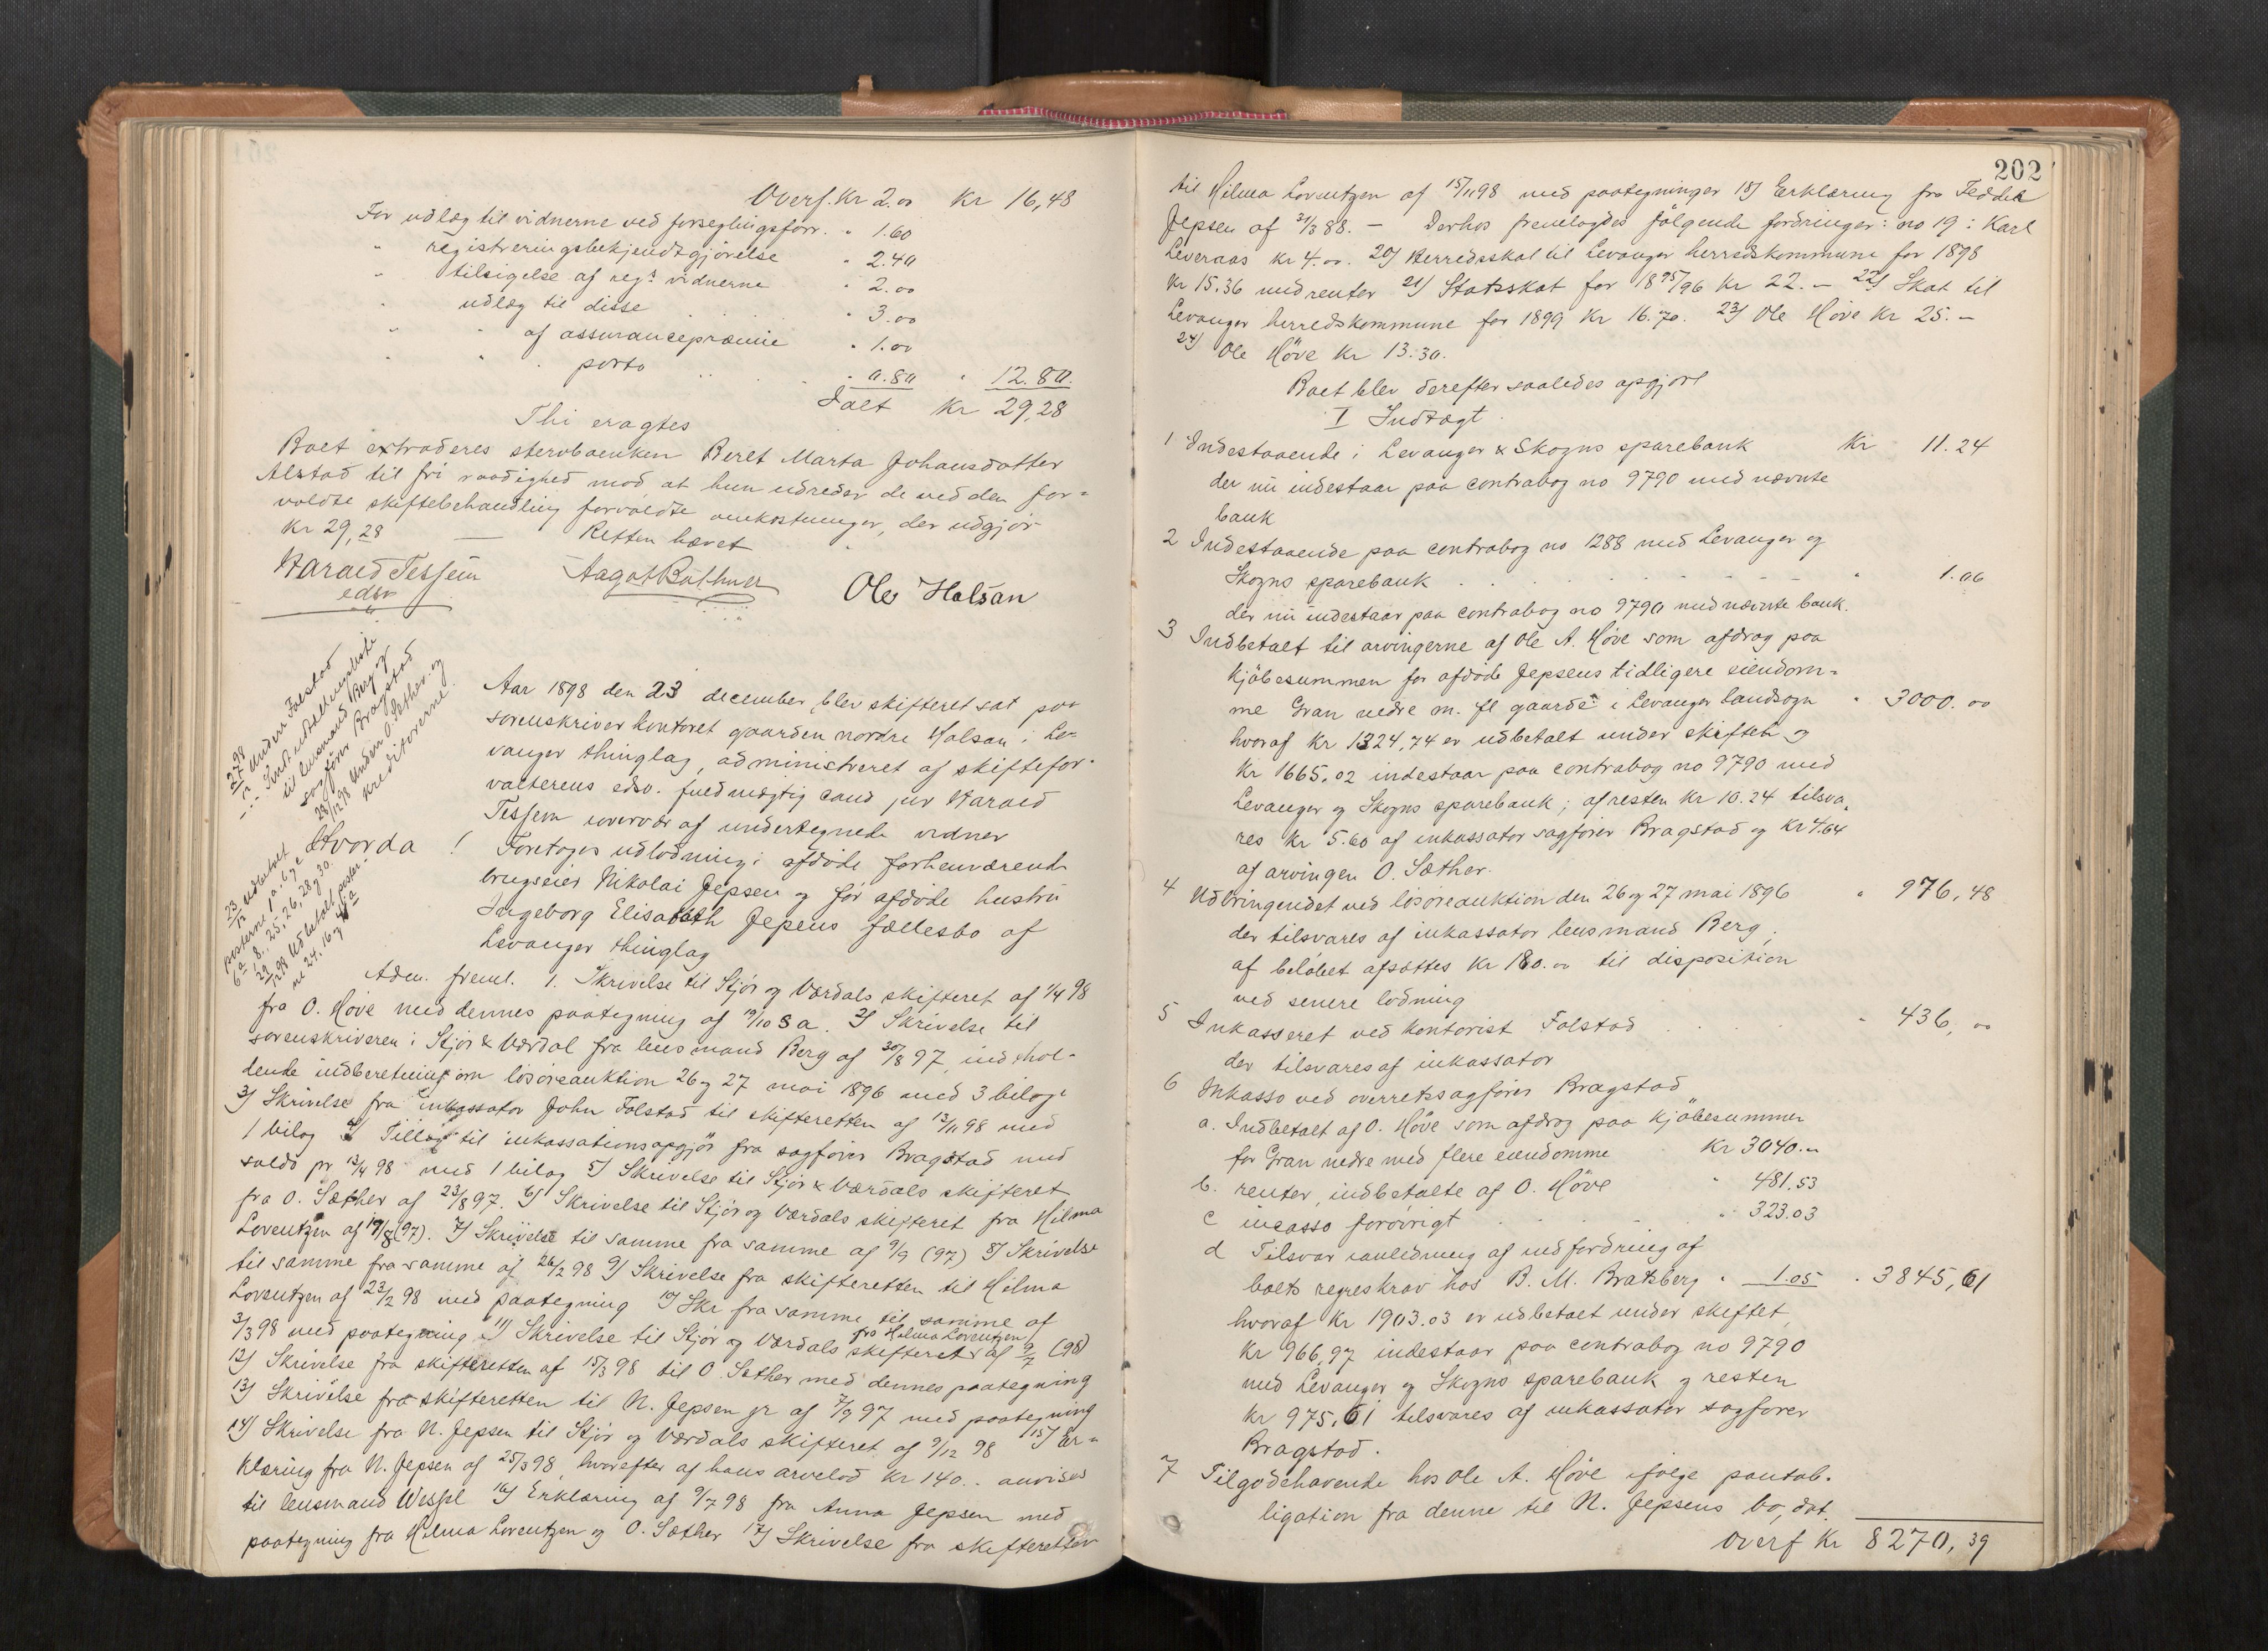 Overf. Kr 2.00 Kr 16,48
For udlæg til vidnerne ved forseglingsforr. " 1.60
" registreringsbekjendtgjörelse " 2.40
" tilsigelse af regs vidnerne " 2.00
" udlæg til disse " 3.00
" " af assurancepræmie " 1.00
" " porto " 0.80 " 12.80.
Ialt Kr 29,28
Thi eragtes
Boet extraderes stervboenken Beret Marta Johansdatter
Alstad til fri raadighed mod at hun udreder de ved den for=
voldte skiftebehandling forvoldte omkostninger, der udgjör
Kr 29,28 — Retten hævet
Harald Tessem Aagot Büthner Ole Halsan
edsv
Aar 1898 den 23 december blev skifteret sat paa
sorenskriverkontoret gaarden nordre Halsan i Le=
vanger thinglag, administreret af skiftefor-
valterens edsv. fuldmægtig cand jur Harald
Tessem overvær af undertegnede vidner
Hvorda !
Foretoges udlodning i afdöde forhenværende
brugseier Nikolai Jepsen og för afdöde hustru
Ingeborg Elisabeth Jepsens fællesbo af
Levanger thinglag
27/12 98 Under Falstad
- " - Ind. udtallingsliste
til lensmand Berg og
sagförer Bragstad
28/12 98 Underr. O. Sæther og
kreditorerne.
23/12 Udbetalt
posterne 1 a. 6 ye
6a, 8, 25, 26, 28 g 30.
29/12 98 Udbetalt poster-
ne 24. 16 g
Adm. freml. 1. Skrivelse til Stjör og Værdals skifteret af 1/4 98
fra O. Höve med dennes paategning af 19/10 s a. 2) Skrivelse til
sorenskriveren i Stjör & Værdal fra lensmand Berg af 30/8 97, indehol-
dende indberetning om lösöreauktion 26 og 27 mai 1896 med 3 bilag.
3) Skrivelse fra inkassator John Falstad til skifteretten af 13/11 98 med
1 bilag 4) Tillæg til inkassationsopgjör fra sagförer Bragstad med
saldo pr. 13/4 98 med 1 bilag 5) Skrivelse til Stjör & Værdals skifteret
fra O. Sæther af 23/8 97. 6) Skrivelse til Stjör og Værdals skifteret fra Hilma
Loventzen af 19/8 (97). 7) Skrivelse til samme fra samme af 9/9 (97) 8) Skrivelse
til samme fra samme af 26/2 98 9) Skrivelse fra skifteretten til Hilma
Lorentzen af 23/2 98 med paategning 10) Skr fra samme til samme af
3/3 98 med paategning 11) Skrivelse til Stjör og Værdals skifteret fra Hilma Lorentzen af 9/7 (98)
12) Skrivelse fra skifteretten af 15/3 98 til O. Sæther med dennes paategning
13) Skrivelse fra skifteretten til N. Jepsen jr af 7/9 97 med paategning
14) Skrivelse fra N. Jepsen til Stjör og Værdals skifteret af 9/12 98 15) Er=
klæring fra N. Jepsen af 25/3 98, hvorefter af hans arvelod kr 140.. anvises
til lensmand Wessel 16) Erklæring af 9/7 98 fra Anna Jepsen med
paategning fra Hilma Lorentzen og O. Sæther 17) Skrivelse fra skifteretten
202
til Hilma Lorentzen af 15/11 98 med paategninger 18) Erklæring fra Fedder
Jepsen af 31/3 88. — Derhos fremlagdes fölgende fordringer: no 19: Karl
Leveraas kr 4.00. 20) Herredsskat til Levanger herredskommune for 1898
Kr 15.36 med renter 21) Statsskat for 1895/96 Kr 22.— 22) Skat til
Levanger herredskommune for 1899 Kr 16.70. 23) Ole Höve Kr 25.—
24) Ole Höve Kr 13.30.
Boet blev derefter saaledes opgjort
I Indtægt.
1 Indestaaende i Levanger & Skogns sparebank Kr 11.24
der nu indestaar paa contrabog no 9790 med nævnte
bank
2 Indestaaende paa contrabog no 1288 med Levanger og
Skogns sparebank " 1.06
der nu indestaar paa contrabog no 9790 med nævnte bank.
3 Indbetalt til arvingerne af Ole A. Höve som afdrag paa
kjöbesummen for afdöde Jepsens tidligere eiendom=
me Gran nedre m. fl gaarde i Levanger landsogn " 3000.00
hvoraf Kr 1324,74 er udbetalt under skiftet og
Kr 1665,02 indestaar paa contrabog no 9790 med
Levanger og Skogns sparebank; af resten Kr 10.24 tilsva=
res Kr 5.60 af inkassator sagförer Bragstad og Kr 4.64
af arvingen O. Sæther.
4 Udbringendet ved lösöreauktion den 26 og 27 mai 1896 " 976,48
der tilsvares af inkassator lensmand Berg,
af belöbet afsættes Kr 180.00 til disposition
ved senere lodning
5 Inkasseret ved kontorist Falstad " 436,00
der tilsvares af inkassator
6 Inkasso ved overretssagförer Bragstad
a. Indbetalt af O. Höve som afdrag paa kjöbesummen
for Gran nedre med flere eiendomme Kr 3040.00
b. renter, indbetalte af O. Höve " 481.53
c incasso forövrigt " 323.03
d Tilsvar i anledning af indfordring af
boets regreskrav hos B. M. Bratsberg " 1.05 " 3845,61
hvoraf Kr 1903.03 er udbetalt under skiftet,
Kr 966,97 indestaar paa contrabog no 9790
med Levanger og Skogns sparebank og resten
Kr 975,61 tilsvares af inkassator sagförer
Bragstad.
7 Tilgodehavende hos Ole A. Höve ifölge pantob-
ligation fra denne til N. Jepsens bo, dat.
Overf Kr 8270,39